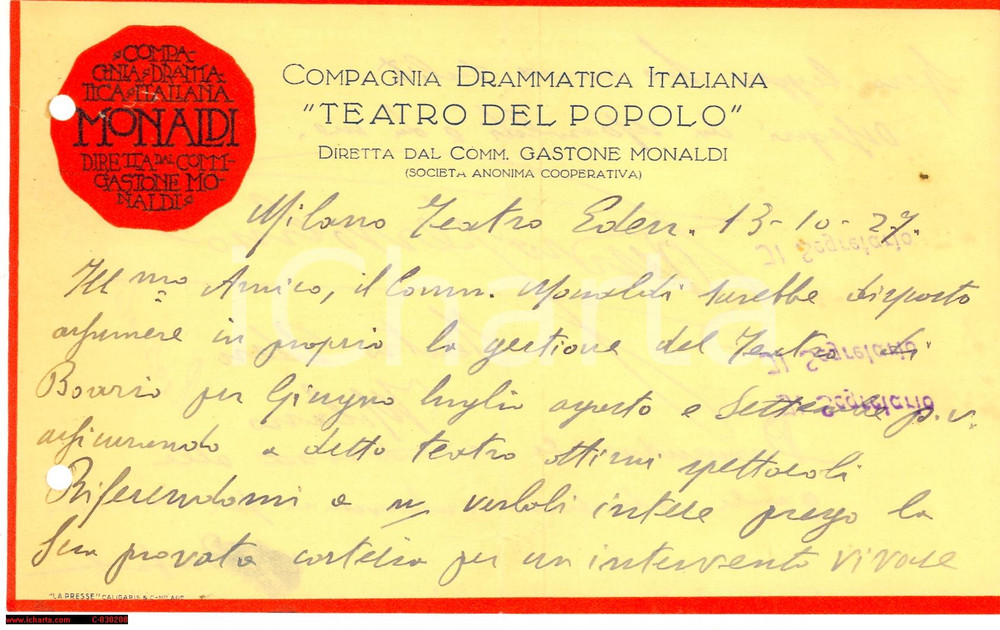 COMPA-
GNIA DRAMMA
TICA ITALIANA
MONALDI
DIRETTA DAL COMM.
GASTONE MO-
NALDI
COMPAGNIA DRAMMATICA ITALIANA
"TEATRO DEL POPOLO"
DIRETTA DAL COMM. GASTONE MONALDI
(SOCIETÀ ANONIMA COOPERATIVA)
Milano Teatro Eden. 13-10-27.
Ill mo Amico, il Comm. Monaldi sarebbe disposto
assumere in proprio la gestione del Teatro di
Boario per Giugno luglio agosto e Settembre p.v.
assicurando a detto teatro ottimi spettacoli
Riferendomi a ns verbali intese prego la
Sua provata cortesia per un intervento vivace
Il Segretario
Il Segretario
Il Segretario
iCharta
"LA PRESSE" CALIGARIS & C-MILANO
www.icharta.com C-030208